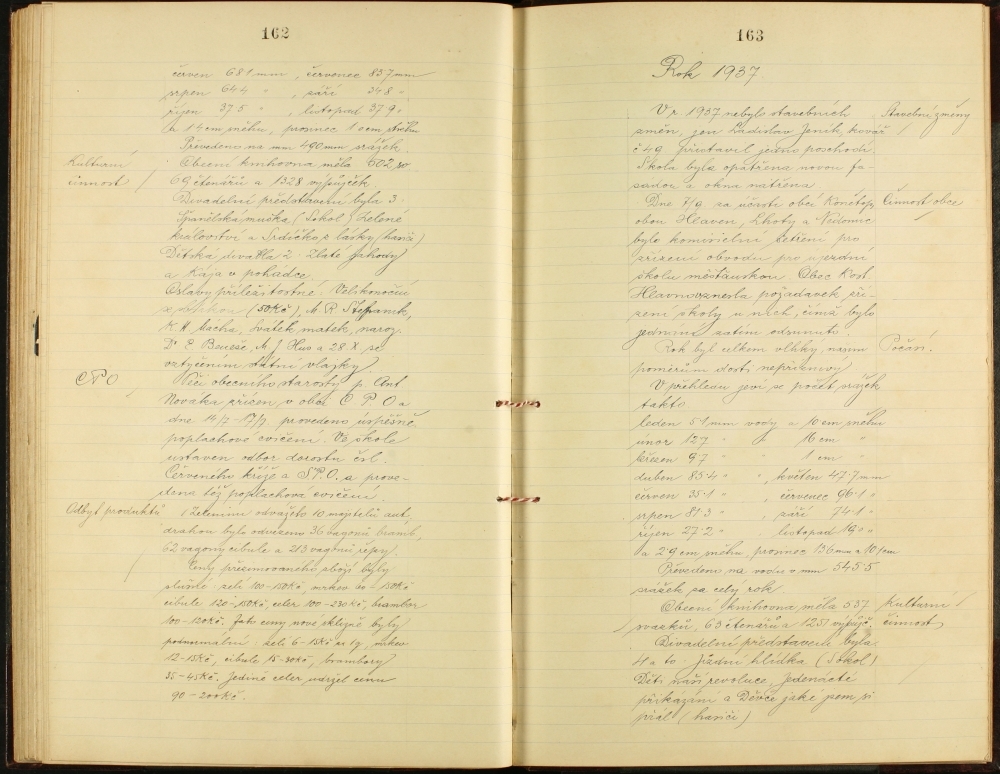 162
červen 68·1 mm, červenec 85·7 mm
srpen 64·4 " , září 34·8 "
říjen 37·5 " , listopad 37·9 "
a 14 cm sněhu, prosinec 1 cm sněhu
Převedeno na mm 490 mm srážek.
Kulturní
činnost
Obecní knihovna měla 602 sv
69 čtenářů a 1328 výpůjček
Divadelní představení byla 3·
Španělská muška (Sokol) Zelené
království a Srdíčko z lásky (hasiči)
Dětská divadla 2· Zlaté jahody
a Kája v pohádce.
Oslavy příležitostné: Velikonoční
s pomlázkou (50Kč), M. R. Štefanik,
K. H. Mácha, Svátek matek, naroz.
Dr E. Beneše, M. J. Hus a 28. X. se
vztyčením státní vlajky.
C P O
Péčí obecního starosty p. Ant
Nováka zřízen v obci C P O a
dne 14/7 - 17/7 provedeno úspěšně
poplachové cvičení. Ve škole
ustaven odbor dorostu čsl.
Červeného kříže a S.P.O. a prove-
dena též poplachová cvičení.
Odbyt produktů
Zeleninu odváželo 10 majitelů aut,
drahou bylo odvezeno 36 vagonů bramb,
62 vagony cibule a 213 vagonů řepy.
Ceny přezimovaného zboží byly
slušné: zelí 100-150Kč, mrkev 60-150Kč
cibule 120-150Kč, celer 100-230Kč, brambor
100-120Kč. Zato ceny nové sklizně byly
podnormální: zelí 6-15Kč za 1q, mrkev
12-15Kč, cibule 15-30Kč, brambory
35-45Kč. Jedině celer udržel cenu
90-200Kč.
163
Rok 1937.
V r. 1937 nebylo stavebních
Stavební změny
změn, jen Ladislav Jeník, kovář
č 49 přistavil jedno poschodí.
Škola byla opatřena novou fa-
sadou a okna natřena
Dne 7/9 za účasti obcí Konětop,
Činnost obce
obou Hlaven, Lhoty a Nedomic
bylo komisielní šetření pro
zřízení obvodu pro újezdní
školu měšťanskou. Obec Kost.
Hlavno vznesla požadavek zří-
zení školy u nich, čímž bylo
jednání zatím odsunuto.
Rok byl celkem vlhký, našim
Počasí.
poměrům dosti nepříznivý
V přehledu jeví se počet srážek
takto:
leden 51 mm vody a 10 cm sněhu
únor 127 " " 16 cm "
březen 97 " " 1 cm "
duben 83·4 " , květen 47·7 mm
červen 35·1 " , červenec 96·1 "
srpen 81·3 " , září 74·1 "
říjen 27·2 " , listopad 19· "
a 2·9 cm sněhu, prosinec 13·6 mm a 10·1 cm
Převedeno na vodu v mm 545·5
srážek za celý rok.
Obecní knihovna měla 537
Kulturní
svazků, 63 čtenářů a 1251 výpůjč.
činnost
Divadelní představení byla
4 a to: Jízdní hlídka (Sokol)
Děti naší revoluce, Jedenácté
přikázání a Děvče jaké jsem si
přál (hasiči)